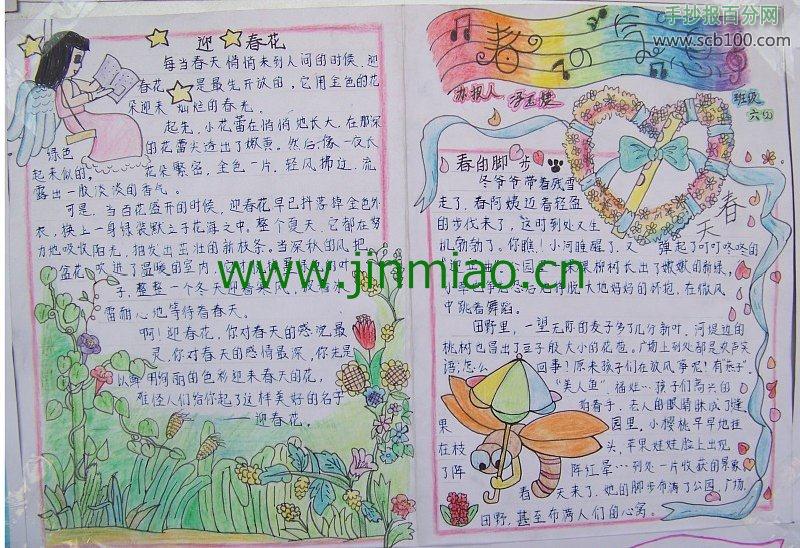 迎春花
每当春天悄悄来到人间的时候,迎
春花 是最先开放的,它用金色的花
朵迎来 灿烂的春光.
起先,小花蕾在悄悄地长大,在那深
绿色 的花蕾尖透出了嫩黄.然后,像一夜长
起来似的. 花朵繁密,金色一片,轻风拂过,流
露出一股淡淡的香气。
可是,当百花盛开的时候,迎春花早已抖落掉金色外
衣,换上一身绿装默立于花海之中.整个夏天,它都在努
力地吸收阳光,抽发出茁壮的新枝条.当深秋的风把
盆花 吹进了温暖的室内,
子,整整一个冬天迎着寒风,
蕾耐心地等待着春天。
啊!迎春花,你对春天的感 最
灵,你对春天的感情最深,你先是
以鲜 用绚丽的色彩迎来春天的花,
难怪人们给你起了这样美好的名子
———迎春花。
手抄报百分网
www.scb100.com
春
办报人
班级
六(2)
春天
春的脚步
冬爷爷带着残雪
走了,春阿姨迈着轻盈
的步伐来了,这时到处又生
机勃勃了。你瞧!小河睡醒了,又 弹起了叮叮咚咚的
柳树长出了嫩嫩的新绿,
在微风
中跳着舞蹈。
田野里,一望无际的麦子多了几分新叶,河堤边的
桃树也冒出了豆子般大小的花苞。广场上到处都是欢声笑
语;怎么 回事!原来孩子们在放风筝呢!有"燕子"
"美人鱼" 孩子们高兴的
拍着手,老人的眼睛眯成了缝
果 园里,小樱桃早早地挂
在枝 头,苹果娃娃脸上出现
了阵 阵红晕…到处一片收获的景象
春 天来了,她的脚步布满了公园、广场、
田野,甚至布满人们的心窝。
www.jinmiao.cn